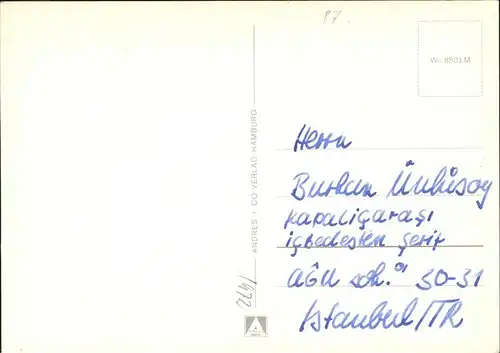 87.
Wu 8501 M
ANDRES + CO VERLAG HAMBURG
Herrn
Burhan Ünlüsoy
Kapaliçarașı
içbedesten Şerif
AĞa sok. 30-31
Istanbul/TR